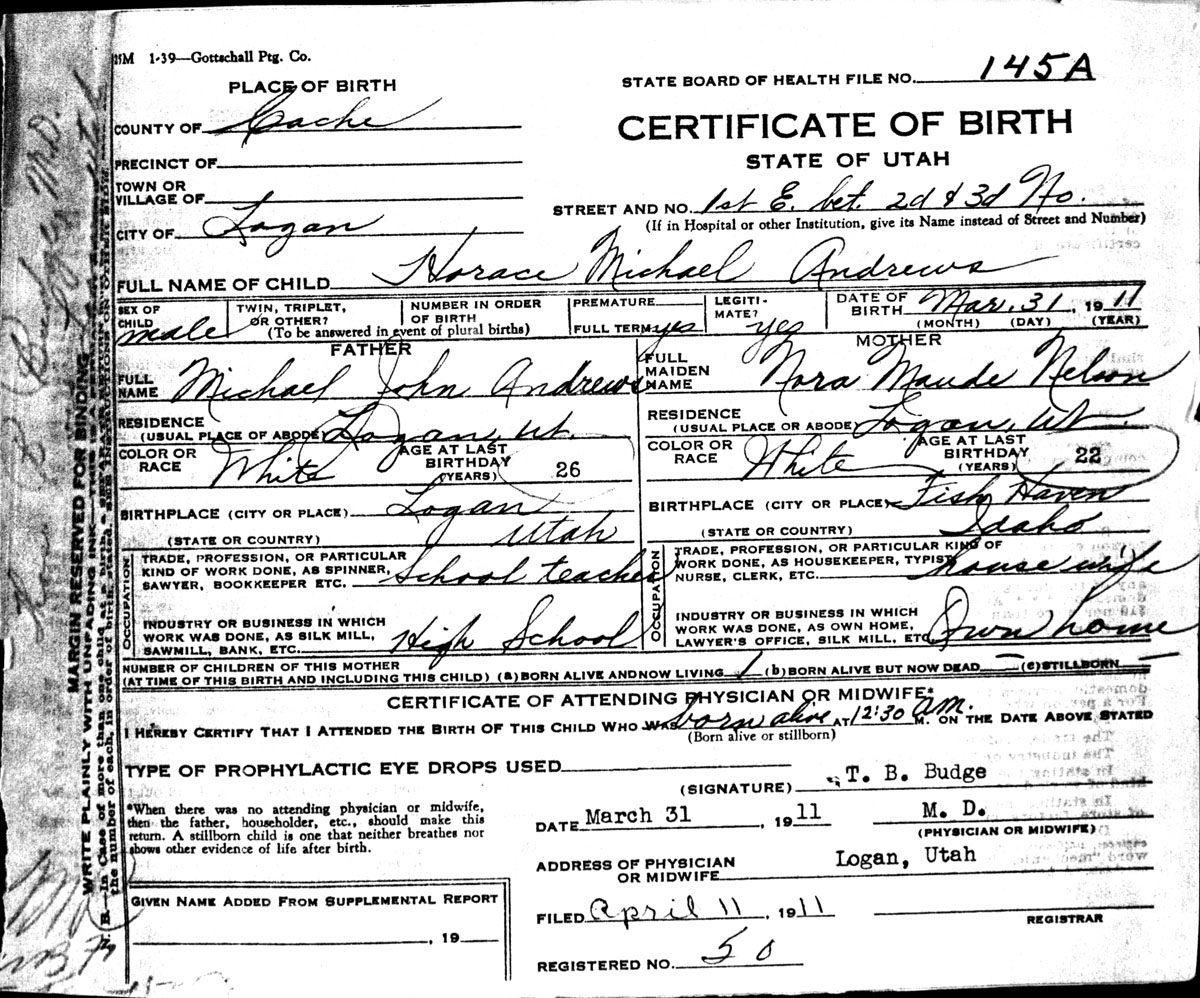 25M 1-39—Gottschall Ptg. Co.
PLACE OF BIRTH
STATE BOARD OF HEALTH FILE NO. 145A
COUNTY OF Cache
CERTIFICATE OF BIRTH
PRECINCT OF
STATE OF UTAH
TOWN OR
VILLAGE OF
STREET AND NO. 1st E. bet. 2d & 3d No.
(If in Hospital or other Institution, give its Name instead of Street and Number)
CITY OF Logan
FULL NAME OF CHILD Horace Michael Andrews
SEX OF CHILD male
TWIN, TRIPLET, OR OTHER?
NUMBER IN ORDER OF BIRTH
(To be answered in event of plural births)
PREMATURE
FULL TERM yes
LEGITI-MATE? yes
DATE OF BIRTH Mar. 31, 1911
(MONTH) (DAY) (YEAR)
FATHER
FULL NAME Michael John Andrews
RESIDENCE
(USUAL PLACE OF ABODE) Logan, Ut.
COLOR OR RACE White
AGE AT LAST BIRTHDAY (YEARS) 26
BIRTHPLACE (CITY OR PLACE) Logan
(STATE OR COUNTRY) Utah
OCCUPATION
TRADE, PROFESSION, OR PARTICULAR
KIND OF WORK DONE, AS SPINNER,
SAWYER, BOOKKEEPER ETC. School teacher
INDUSTRY OR BUSINESS IN WHICH
WORK WAS DONE, AS SILK MILL,
SAWMILL, BANK, ETC. High School
MOTHER
FULL MAIDEN NAME Nora Maude Nelson
RESIDENCE
(USUAL PLACE OF ABODE) Logan, Ut.
COLOR OR RACE White
AGE AT LAST BIRTHDAY (YEARS) 22
BIRTHPLACE (CITY OR PLACE) Fish Haven
(STATE OR COUNTRY) Idaho
OCCUPATION
TRADE, PROFESSION, OR PARTICULAR KIND OF
WORK DONE, AS HOUSEKEEPER, TYPIST,
NURSE, CLERK, ETC. house wife
INDUSTRY OR BUSINESS IN WHICH
WORK WAS DONE, AS OWN HOME,
LAWYER'S OFFICE, SILK MILL, ETC. Own home
NUMBER OF CHILDREN OF THIS MOTHER
(AT TIME OF THIS BIRTH AND INCLUDING THIS CHILD) (a) BORN ALIVE AND NOW LIVING 1 (b) BORN ALIVE BUT NOW DEAD — (c) STILLBORN —
CERTIFICATE OF ATTENDING PHYSICIAN OR MIDWIFE*
I HEREBY CERTIFY THAT I ATTENDED THE BIRTH OF THIS CHILD WHO WAS born alive AT 12:30 A.M. ON THE DATE ABOVE STATED
(Born alive or stillborn)
TYPE OF PROPHYLACTIC EYE DROPS USED
(SIGNATURE) T. B. Budge
*When there was no attending physician or midwife,
then the father, householder, etc., should make this
return. A stillborn child is one that neither breathes nor
shows other evidence of life after birth.
DATE March 31, 1911 M. D.
(PHYSICIAN OR MIDWIFE)
ADDRESS OF PHYSICIAN
OR MIDWIFE Logan, Utah
GIVEN NAME ADDED FROM SUPPLEMENTAL REPORT
, 19
FILED April 11, 1911
REGISTRAR
REGISTERED NO. 50
MARGIN RESERVED FOR BINDING
WRITE PLAINLY WITH UNFADING INK—THIS IS A
N. B.—In Case of more than one child at a
the number of each, in order of birth, stated. SEE INSTRUCTIONS ON OTHER SIDE.